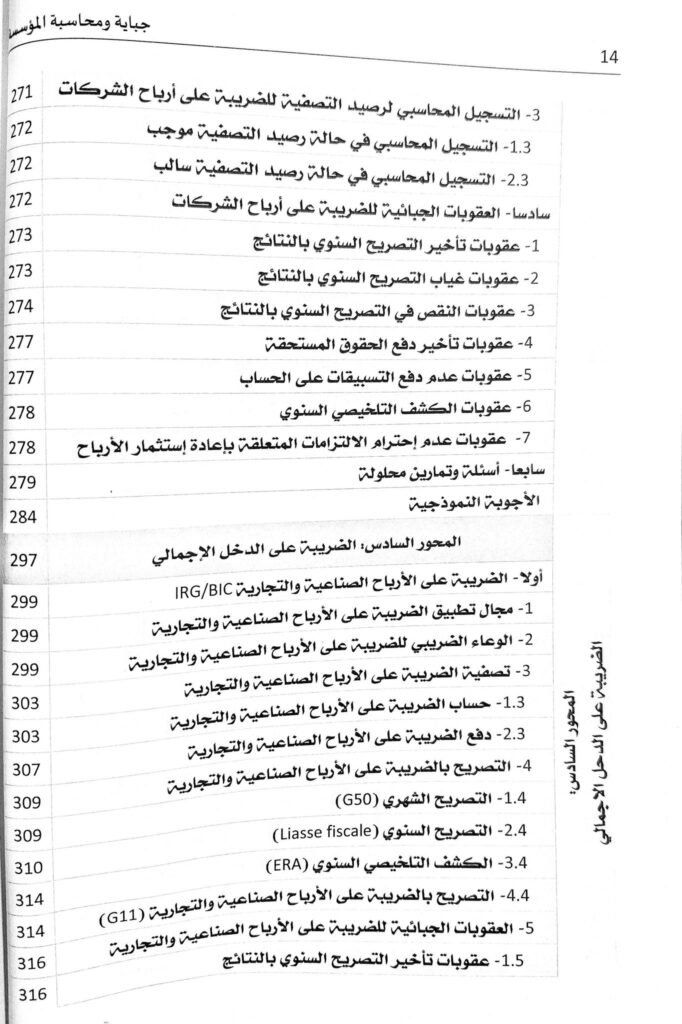 جباية ومحاسبة المؤسس
14
3- التسجيل المحاسبي لرصيد التصفية للضريبة على أرباح الشركات 271
1.3- التسجيل المحاسبي في حالة رصيد التصفية موجب 272
2.3- التسجيل المحاسبي في حالة رصيد التصفية سالب 272
سادسا- العقوبات الجبائية للضريبة على أرباح الشركات 272
1- عقوبات تأخير التصريح السنوي بالنتائج 273
2- عقوبات غياب التصريح السنوي بالنتائج 273
3- عقوبات النقص في التصريح السنوي بالنتائج 274
4- عقوبات تأخير دفع الحقوق المستحقة 277
5- عقوبات عدم دفع التسبيقات على الحساب 277
6- عقوبات الكشف التلخيصي السنوي 278
7- عقوبات عدم إحترام الالتزامات المتعلقة بإعادة إستثمار الأرباح 278
سابعا- أسئلة وتمارين محلولة 279
الأجوبة النموذجية 284
المحور السادس: الضريبة على الدخل الإجمالي 297
أولا- الضريبة على الأرباح الصناعية والتجارية IRG/BIC 299
1- مجال تطبيق الضريبة على الأرباح الصناعية والتجارية 299
2- الوعاء الضريبي للضريبة على الأرباح الصناعية والتجارية 299
3- تصفية الضريبة على الأرباح الصناعية والتجارية 303
1.3- حساب الضريبة على الأرباح الصناعية والتجارية 303
2.3- دفع الضريبة على الأرباح الصناعية والتجارية 307
4- التصريح بالضريبة على الأرباح الصناعية والتجارية 309
1.4- التصريح الشهري (G50) 309
2.4- التصريح السنوي (Liasse fiscale) 310
3.4- الكشف التلخيصي السنوي (ERA) 314
4.4- التصريح بالضريبة على الأرباح الصناعية والتجارية (G11) 314
5- العقوبات الجبائية للضريبة على الأرباح الصناعية والتجارية 316
1.5- عقوبات تأخير التصريح السنوي بالنتائج 316
المحور السادس:
الضريبة على الدخل الاجمالي